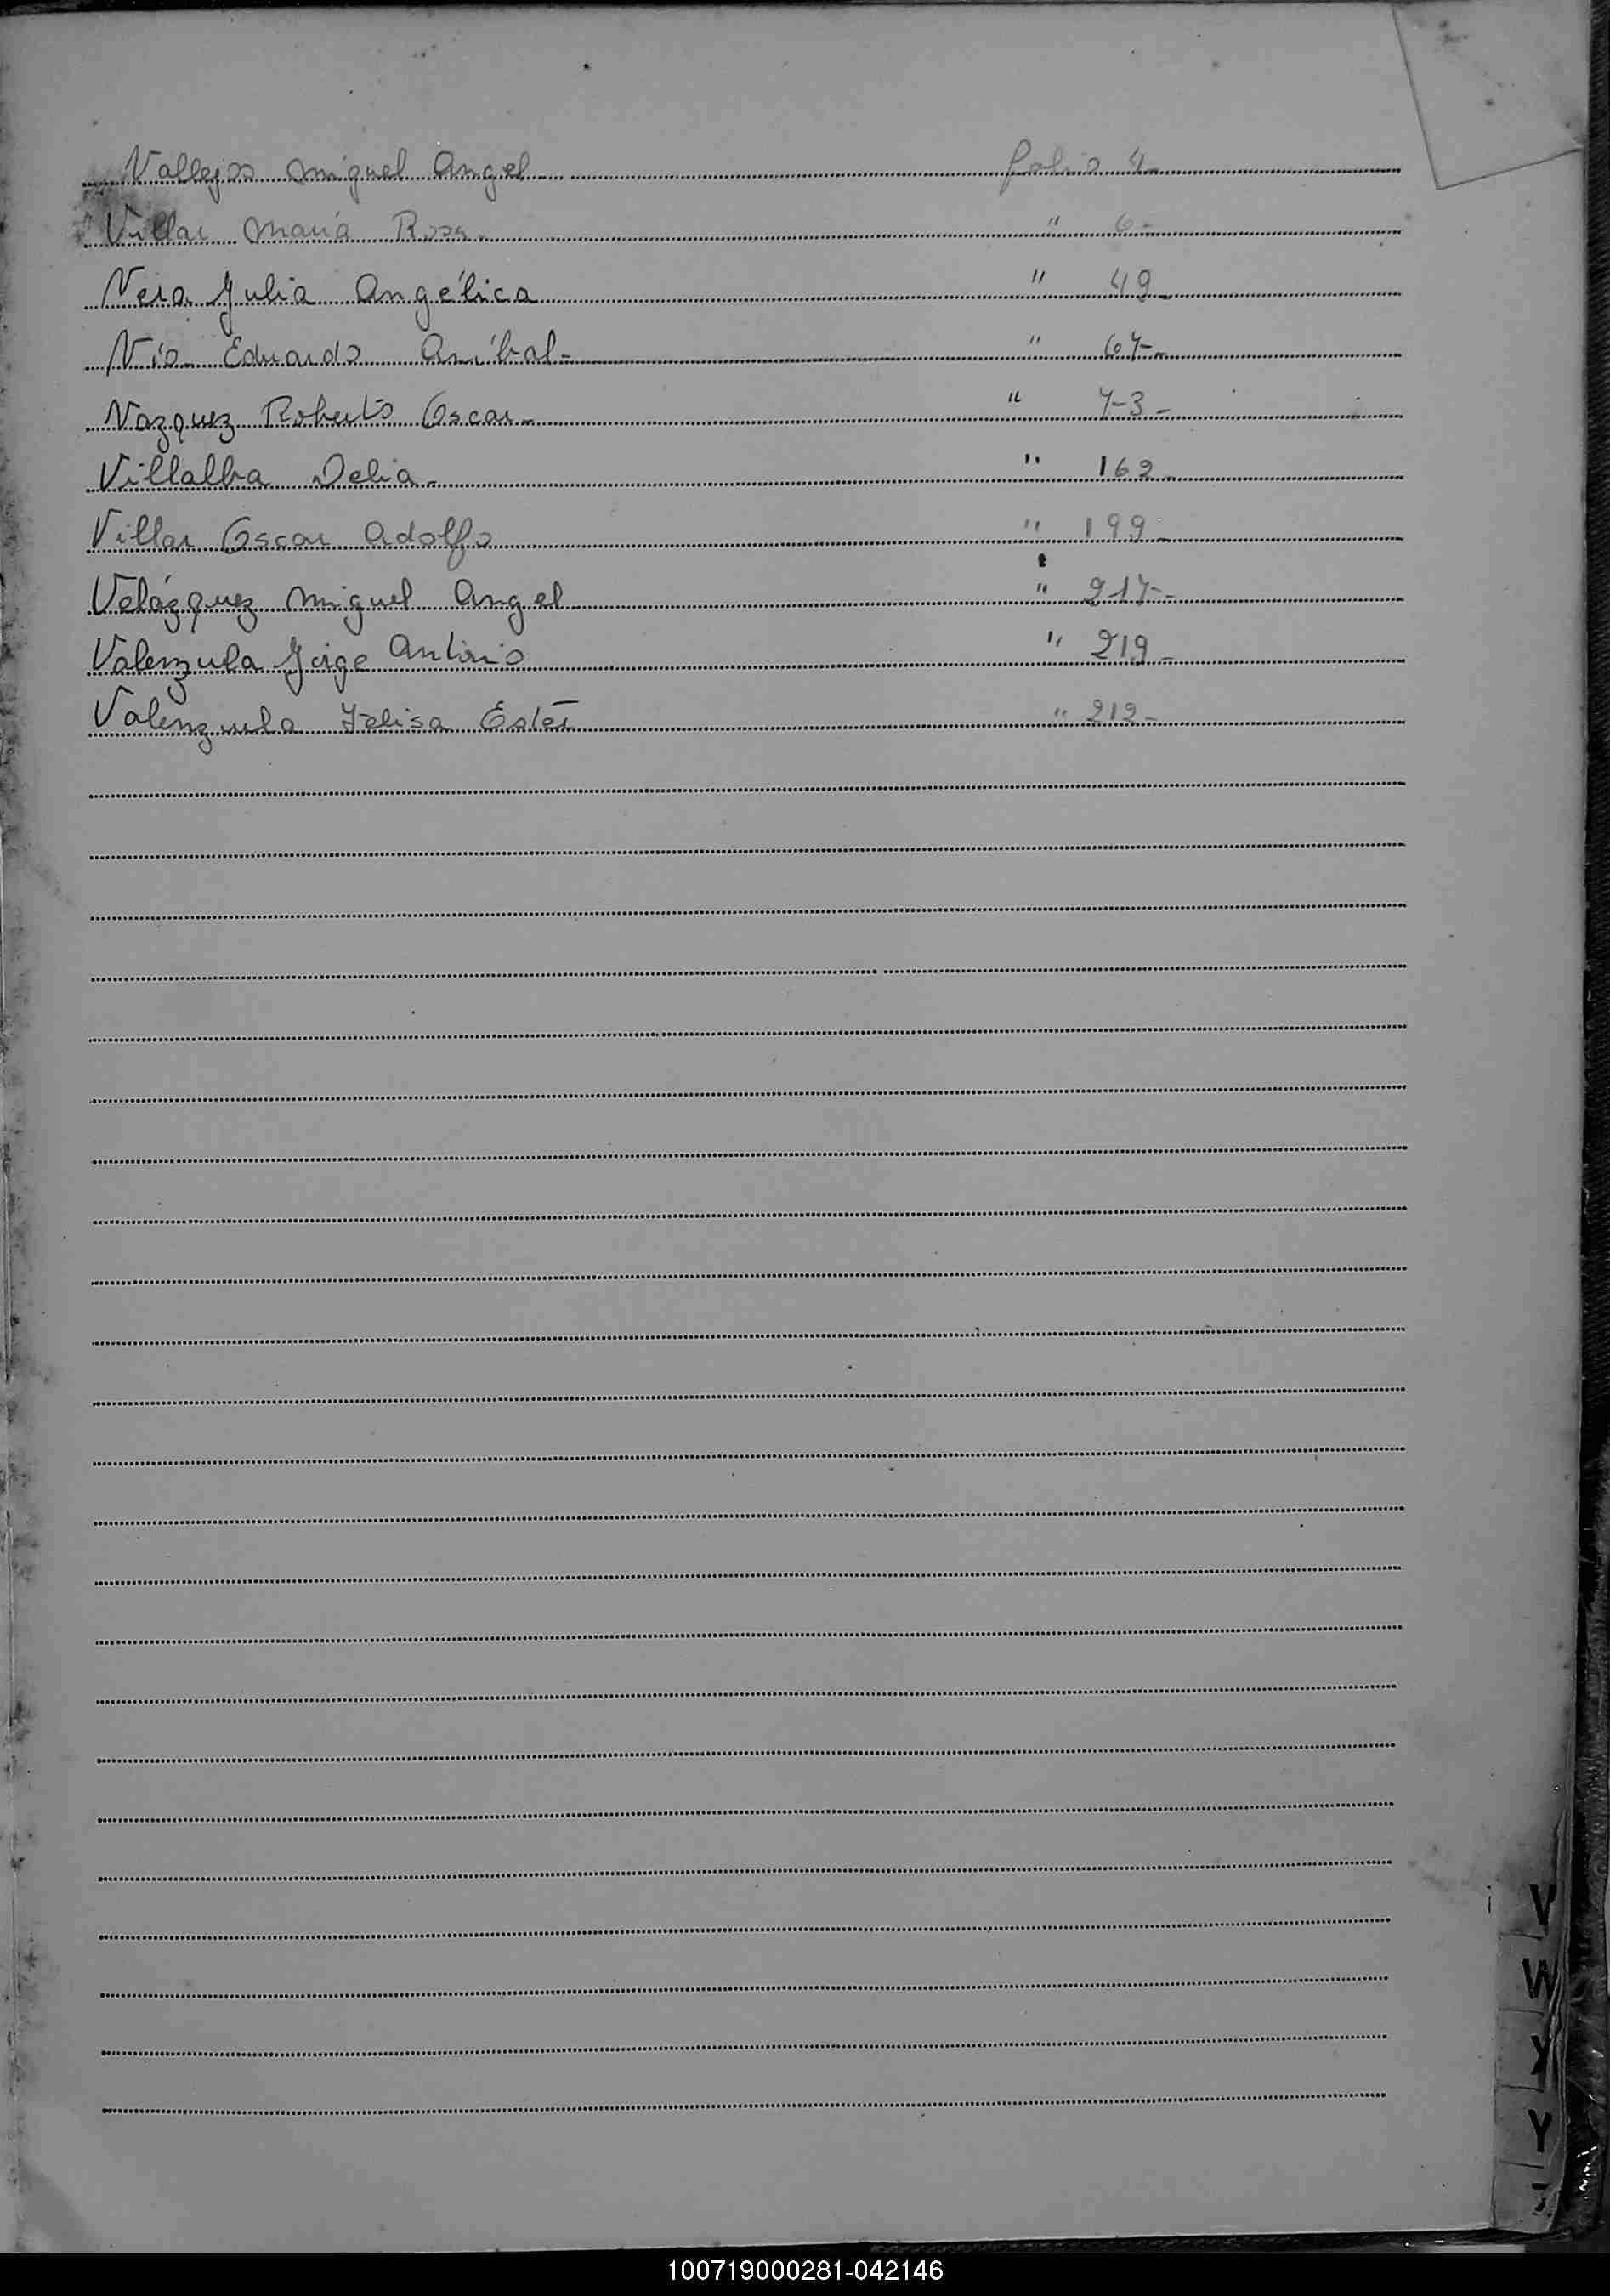 Vallejos Miguel Angel folio 4-
Villar María Rosa - " 6-
Vera Julia Angélica " 49-
Vío Eduardo Aníbal - " 67-
Vazquez Roberto Oscar - " 73-
Villalba Delia - " 162-
Villar Oscar Adolfo " 199-
Velázquez Miguel Angel " 217-
Valenzuela Jorge Antonio " 219-
Valenzuela Felisa Ester " 212-
V
W
X
Y
Z
100719000281-042146